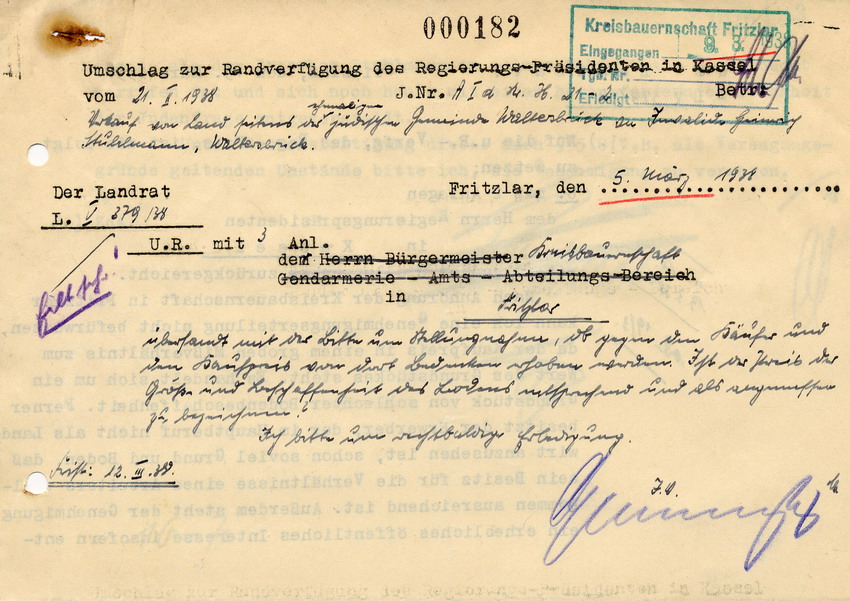 000182
Kreisbauernschaft Fritzlar
Eingegangen 9. 3. 1938
Tgb. Nr.
Erledigt
Umschlag zur Randverfügung des Regierungs-Präsidenten in Kassel
vom 21. II. 1938 J.Nr. A I d H. 21-2 Betr.
ehemaligen
Verkauf von Land seitens der jüdischen Gemeinde Walterbrück an Invalide Heinrich
Stuhlmann, Walterbrück.
Der Landrat Fritzlar, den 5. März 1938
L. V 379/38
U.R. mit 3 Anl.
Eilt sehr!
dem Herrn Bürgermeister Kreisbauernschaft
Gendarmerie - Amts - Abteilungs-Bereich
in
Fritzlar
übersandt mit der Bitte um Stellungnahme, ob gegen den Käufer und
den Kaufpreis von dort Bedenken erhoben werden. Ist der Preis der
Größe und Beschaffenheit des Landes entsprechend und als angemessen
zu bezeichnen?
Ich bitte um rechtbaldige Erledigung.
Frist: 12. III. 38.
I.V.